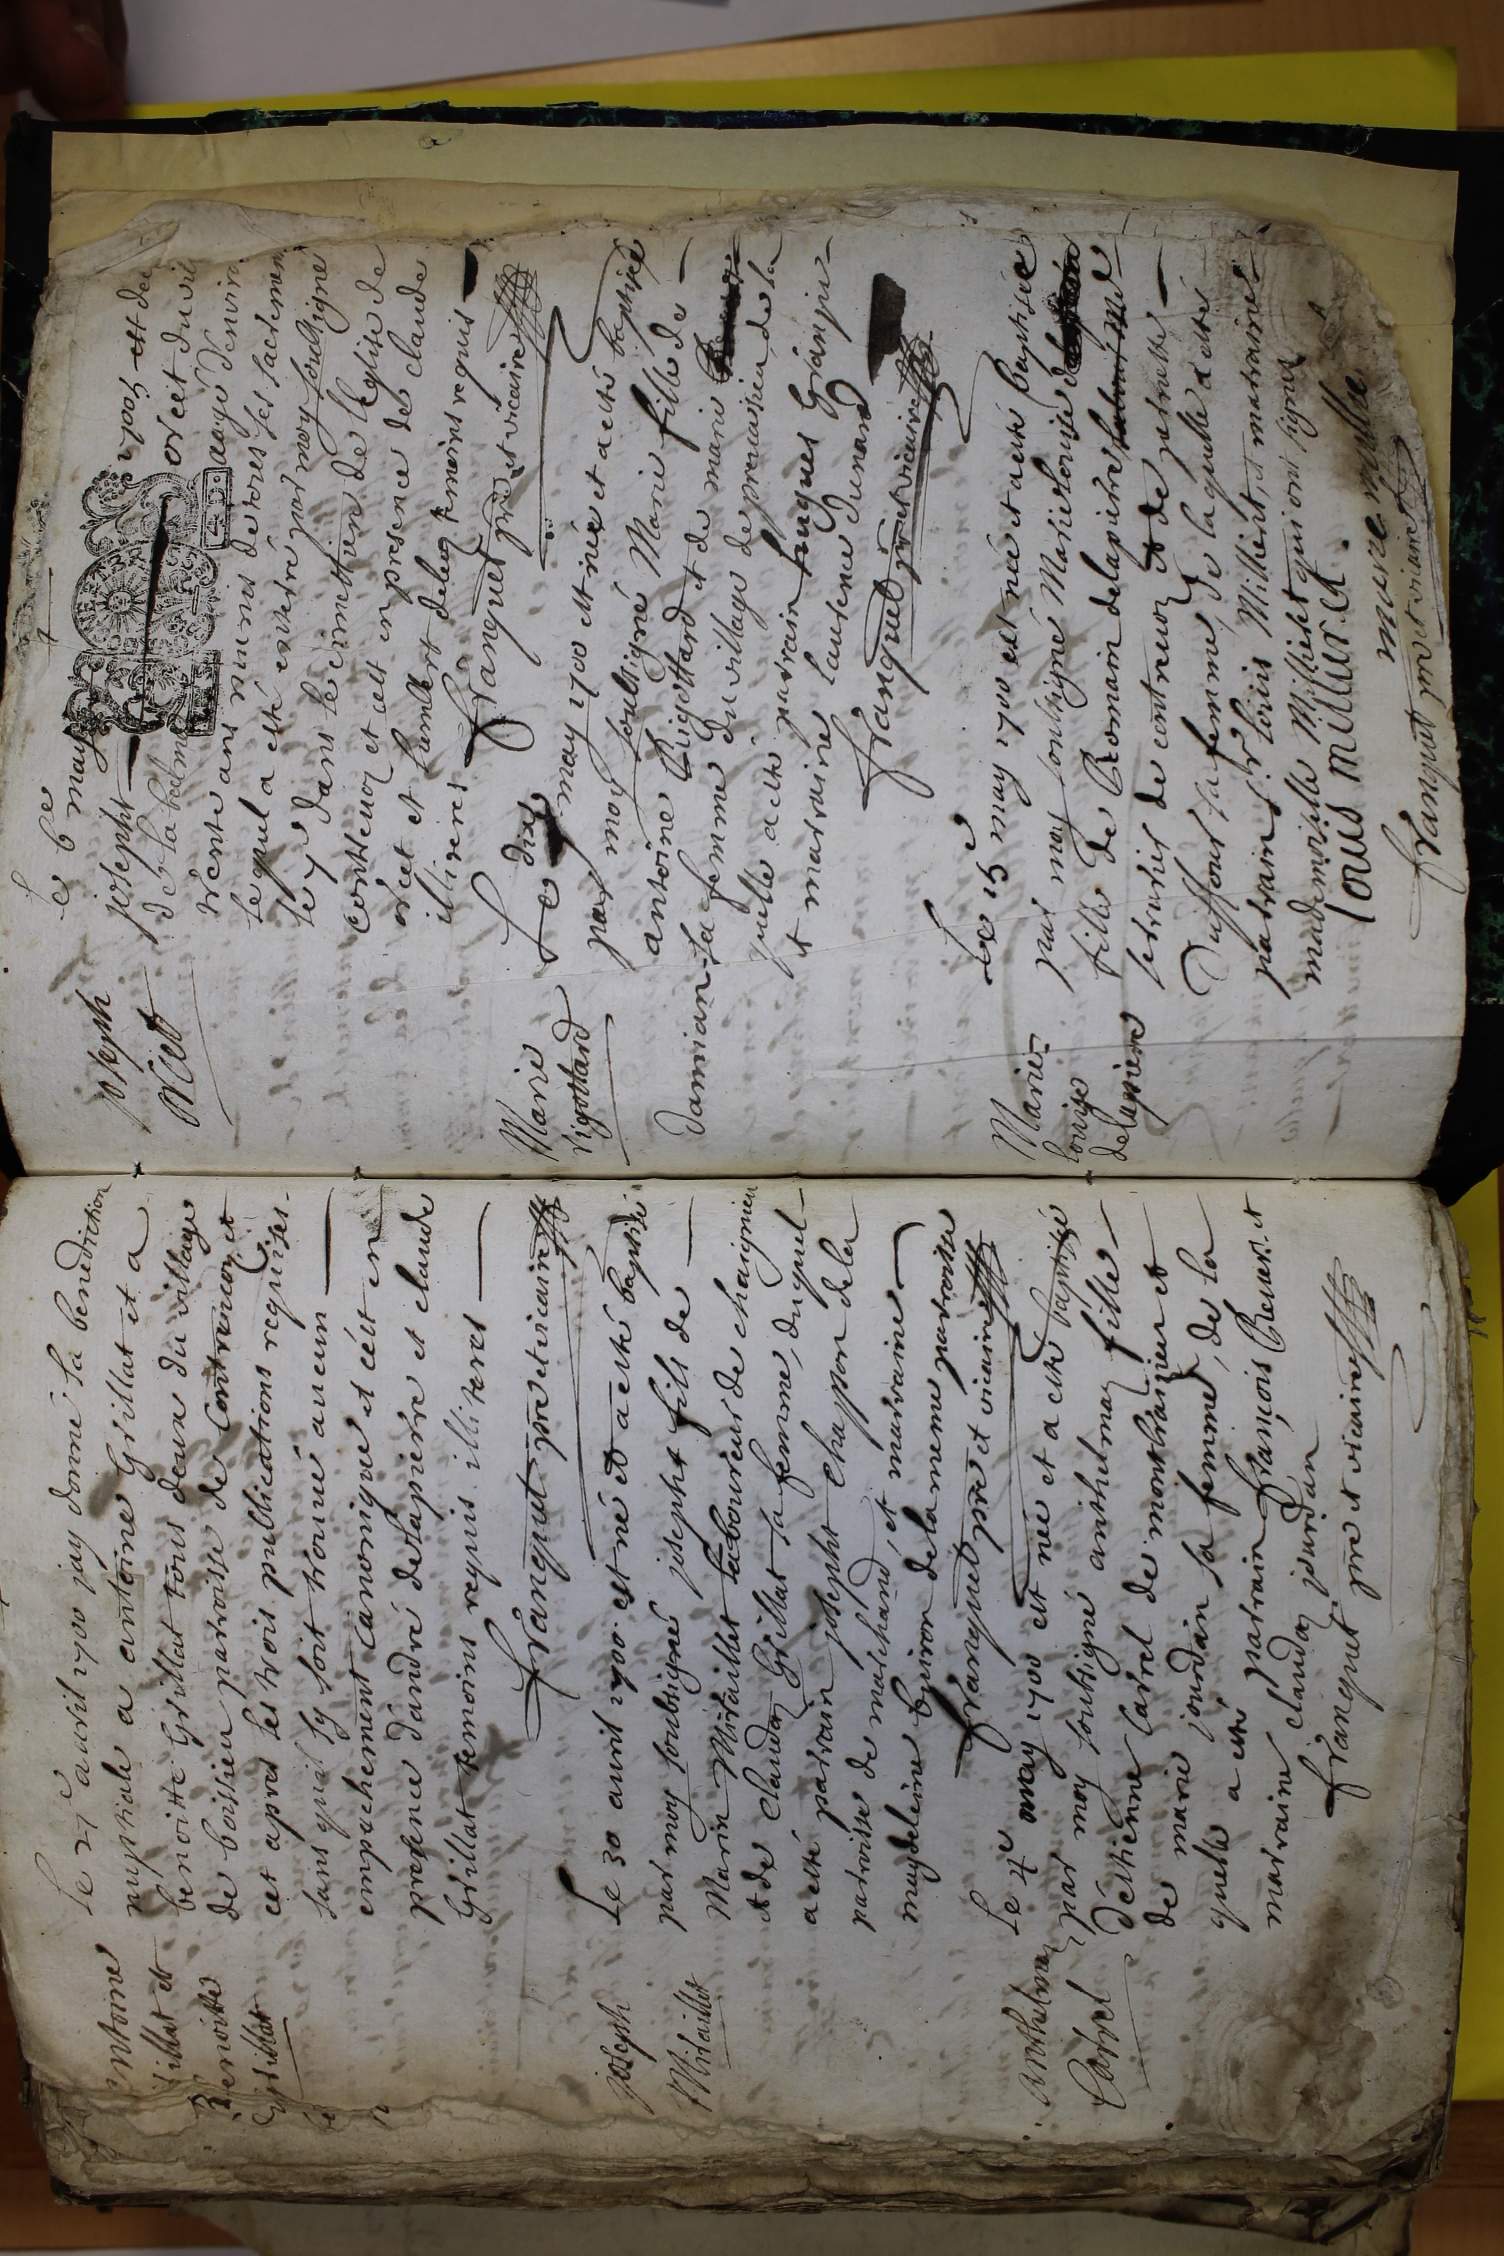 Antoine
Grillat et
Benoitte
Grillat
Le 27e avril 1700 jay donné la benediction
nuptiale a antoine Grillat et a
benoitte Grillat tous deux du village
de boissieu parroisse de Contrevoz et
cet apres les trois publications requises
sans quil sy soit trouvé aucun
empechement Canonique et cést en
presence d'andré delapierre et claude
Grillat temoins requis illiteres
franquet pre et vicaire
joseph
Miraillet
Le 30 avril 1700 est né et a esté baptisé
par moy soubsigné joseph fils de
Marin Miraillet laboureur de chavignieu
et de Claudaz Grillat sa femme, duquel
a esté parrain joseph chappon de la
parroisse de marchand, et marraine
magdeleine buiron de la meme parroisse
franquet pre et vicaire
Anthelmaz
Carrel
Le 4e may 1700 est née et a esté baptisée
par moy soubsigné anthelmaz fille
d'estienne Carrel de montbanier et
de marie jourdain sa femme, de la
quelle a esté parrain françois et
marraine claudaz jourdan
franquet pre et vicaire
joseph
orcet
Le 6e may 1700 est
joseph orcet du vil
de la balme aage d'envir
trente ans munis de tous ses sacremen
le quel a esté enterré par moy soubsigné
le 7 dans le cimettiere de l'eglise de
Contrevoz et cést en presence de claude
orcet et humbert temoins requis
illiteres franquet pre et vicaire
Marie
rigottard
Le dix may 1700 est née et a esté baptisée
par moy soubsigné Marie fille de
antoine Rigottard et de marie
damian sa femme du village de premilieu, de la
quelle a esté parrain hugues Granjus
et marraine laurence dunand
franquet pre et vicaire
Marie
louise
delapierre
Le 15e may 1700 est née et a esté Baptisée
par moy soubsigné Marie louise
fille de Romain delapierre
de contrevoz et de pernette
Duffour sa femme, de la quelle a esté
parrain Sr louis Millieret, et marraine
mademoiselle Millieret qui ont signés
louis millieret
franquet pre et vicaire